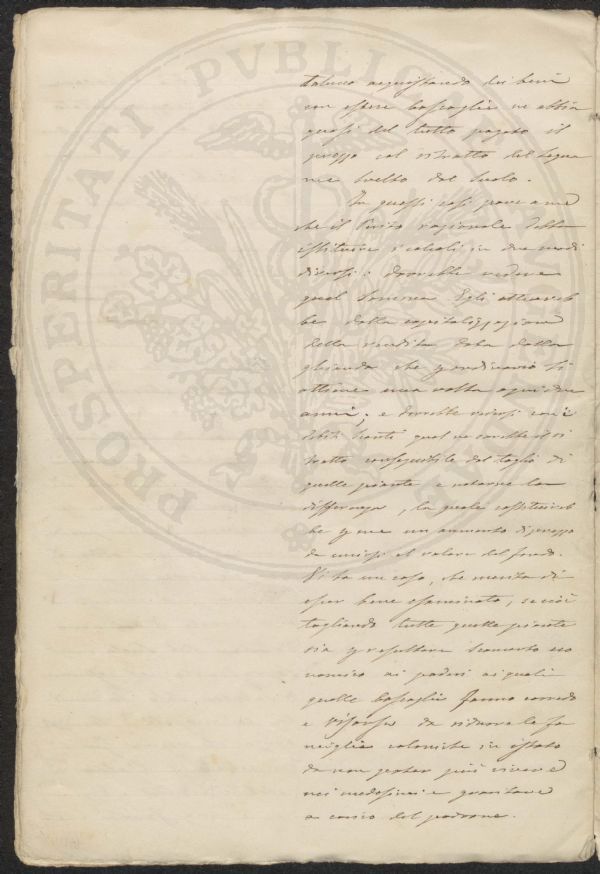 taluno acquistando dei beni
con estese boscaglie ne abbia
quasi del tutto pagato il
prezzo col ritratto del legna
me svelto dal suolo.
In questi casi pare a me
che il Perito razionale debba
istituire i calcoli in due modi
diversi: dovrebbe vedere
qual somma Egli otterreb
be dalla capitalizzazione
della rendita data dalla
ghianda che per ordinario si
ottiene una volta ogni due
anni; e dovrebbe vedersi con i
debiti sconti qual ne sarebbe il ri
tratto conseguibile dal taglio di
quelle piante e notarne la
differenza, la quale costituireb
be per me un aumento di prezzo
da unirsi al valore del fondo.
Vi ha un caso, che merita di
esser bene esaminato, se cioè
tagliando tutte quelle piante
sia per resultare sconcerto eco
nomico ai poderi ai quali
quelle boscaglie fanno corredo
e risorsa da ridurre la fa
miglia colonica in istato
da non poter più vivere
nei medesimi e gravitare
a carico del padrone.
PROSPERITATI PVBLICAE